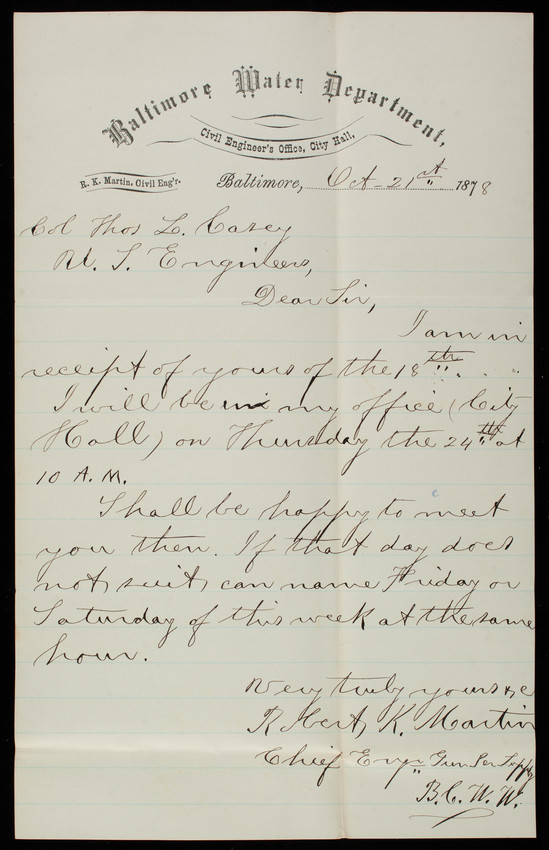 Baltimore Water Department,
Civil Engineer's Office, City Hall,
R. K. Martin, Civil Eng'r.
Baltimore, Oct- 21st 1878
Col Thos L. Casey
U. S. Engineers,
Dear Sir,
I am in
receipt of yours of the 18th
I will be in my office (City
Hall) on Thursday the 24th at
10 A.M.
Shall be happy to meet
you then. If that day does
not suit, can name Friday or
Saturday of this week at the same
hour.
Very truly yours &c
Robert K. Martin
Chief Engr
B. C. W. W.